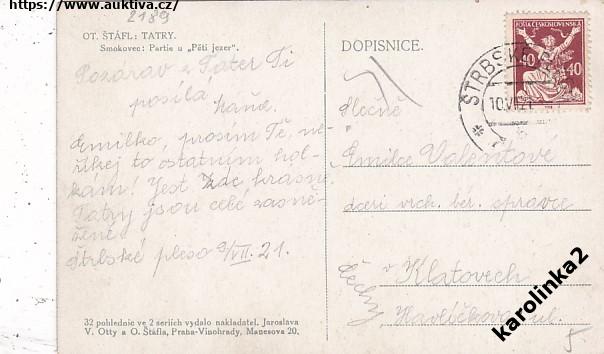 https://www.auktiva.cz/
2189
OT. ŠTÁFL: TATRY.
Smokovec: Partie u „Pěti jezer".
Pozdrav z Tater Ti
posílá
Káňa.
Emilko, prosím Tě, ne-
říkej to ostatním hol-
kám! Jest zde krásně
Tatry jsou celé zasně-
žené.
Štrbské pleso 9/VII. 21.
32 pohlednic ve 2 seriích vydalo nakladatel. Jaroslava
V. Otty a O. Štáfla, Praha-Vinohrady, Manesova 20.
DOPISNICE.
POŠTA ČESKOSLOVENSKÁ
40 40
ŠTRBSKÉ
10.VII.21
Slečně
Emilce Valentové
dceři vrch. ber. správce
v Klatovech
Čechy
Havlíčkova ul.
karolinka2
5